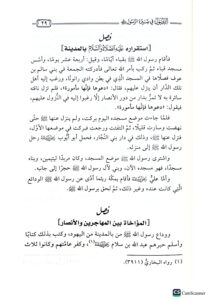 الفصول في سيرة الرسول ﷺ
٢٩
فصل
[استقراره عليه الصلاة والسلام بالمدينة]
فأقام رسول الله ﷺ بقباء أيامًا، وقيل: أربعة عشر يومًا، وأسس
مسجد قباء، ثم ركب بأمر الله تعالى فأدركته الجمعة في بني سالم بن
عوف فصلاها في المسجد الذي في بطن وادي رانونا، ورغب إليه أهل
تلك الدار أن ينزل عليهم، فقال: «دعوها فإنها مأمورة»، فلم تزل ناقته
سائرة به لا تمر بدار من دور الأنصار إلا رغبوا إليه في النزول عليهم،
فيقول: «دعوها فإنها مأمورة».
فلما جاءت موضع مسجده اليوم بركت، ولم ينزل عنها ﷺ حتى
نهضت وسارت قليلًا، ثم التفتت ورجعت فبركت في موضعها الأول،
فنزل عنها ﷺ، وذلك في دار بني النجار، فحمل أبو أيوب رحل
رسول الله ﷺ إلى منزله.
واشترى رسول الله ﷺ موضع المسجد، وكان مربدًا ليتيمين، وبناه
مسجدًا، فهو مسجده الآن، وبنى لآل رسول الله ﷺ حجرًا إلى جانبه.
وأما علي فأقام بمكة ريثما أدى عن رسول الله ﷺ الودائع
التي كانت عنده وغير ذلك، ثم لحق برسول الله ﷺ.
فصل
[المؤاخاة بين المهاجرين والأنصار]
ووادع رسول الله ﷺ من بالمدينة من اليهود، وكتب بذلك كتابًا
وأسلم حبرهم عبد الله بن سلام (١)، وكفر عامتهم وكانوا ثلاث
(١) رواه البخاري (٣٩١١).
CamScanner